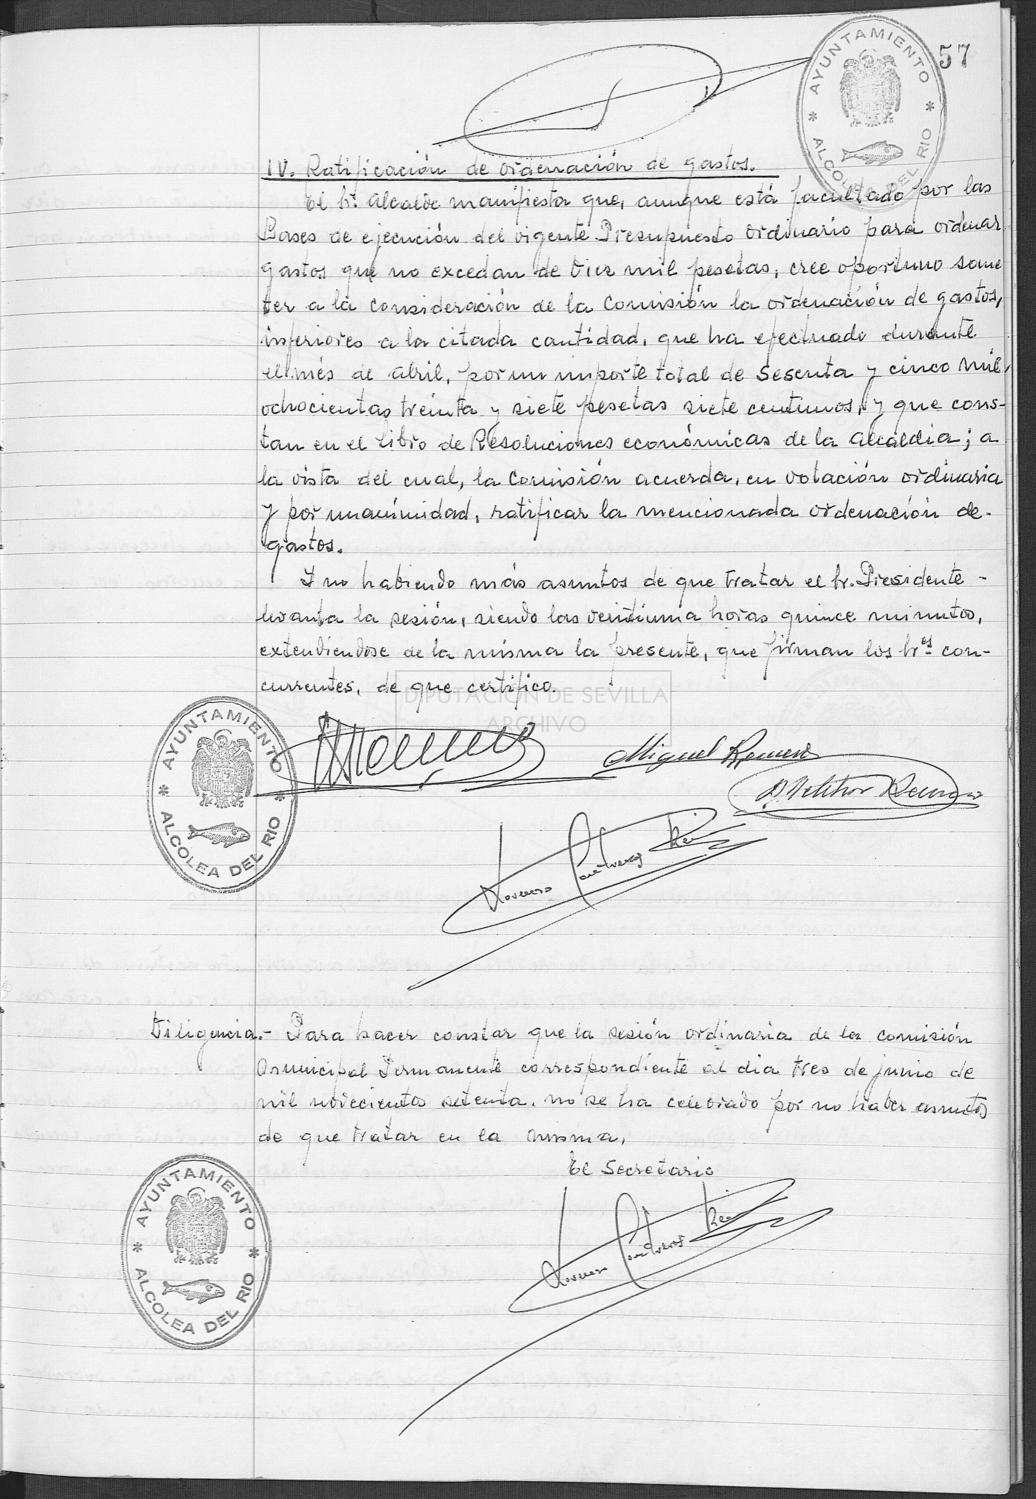 57
AYUNTAMIENTO
ALCOLEA DEL RIO
IV. Ratificación de ordenación de gastos.
El Sr. Alcalde manifiesta que, aunque está facultado por las
Bases de ejecución del vigente Presupuesto ordinario para ordenar
gastos que no excedan de diez mil pesetas, cree oportuno some
ter a la consideración de la Comisión la ordenación de gastos,
inferiores a la citada cantidad, que ha efectuado durante
el mes de abril, por un importe total de sesenta y cinco mil
ochocientas treinta y siete pesetas siete centimos, y que cons-
tan en el Libro de Resoluciones económicas de la Alcaldia; a
la vista del cual, la Comisión acuerda, en votación ordinaria
y por unanimidad, ratificar la mencionada ordenación de-
gastos.
Y no habiendo más asuntos de que tratar el Sr. Presidente-
levanta la sesión, siendo las veintiuna horas quince minutos,
extendiendose de la misma la presente, que firman los Sres. con-
currentes, de que certifico.
DIPUTACIÓN DE SEVILLA
ARCHIVO
AYUNTAMIENTO
ALCOLEA DEL RIO
Miguel Romero
Lorenzo Contreras
Diligencia.- Para hacer constar que la sesión ordinaria de la comisión
municipal Permanente correspondiente al dia tres de junio de
mil novecientos setenta, no se ha celebrado por no haber asuntos
de que tratar en la misma.
El Secretario
AYUNTAMIENTO
ALCOLEA DEL RIO
Lorenzo Contreras